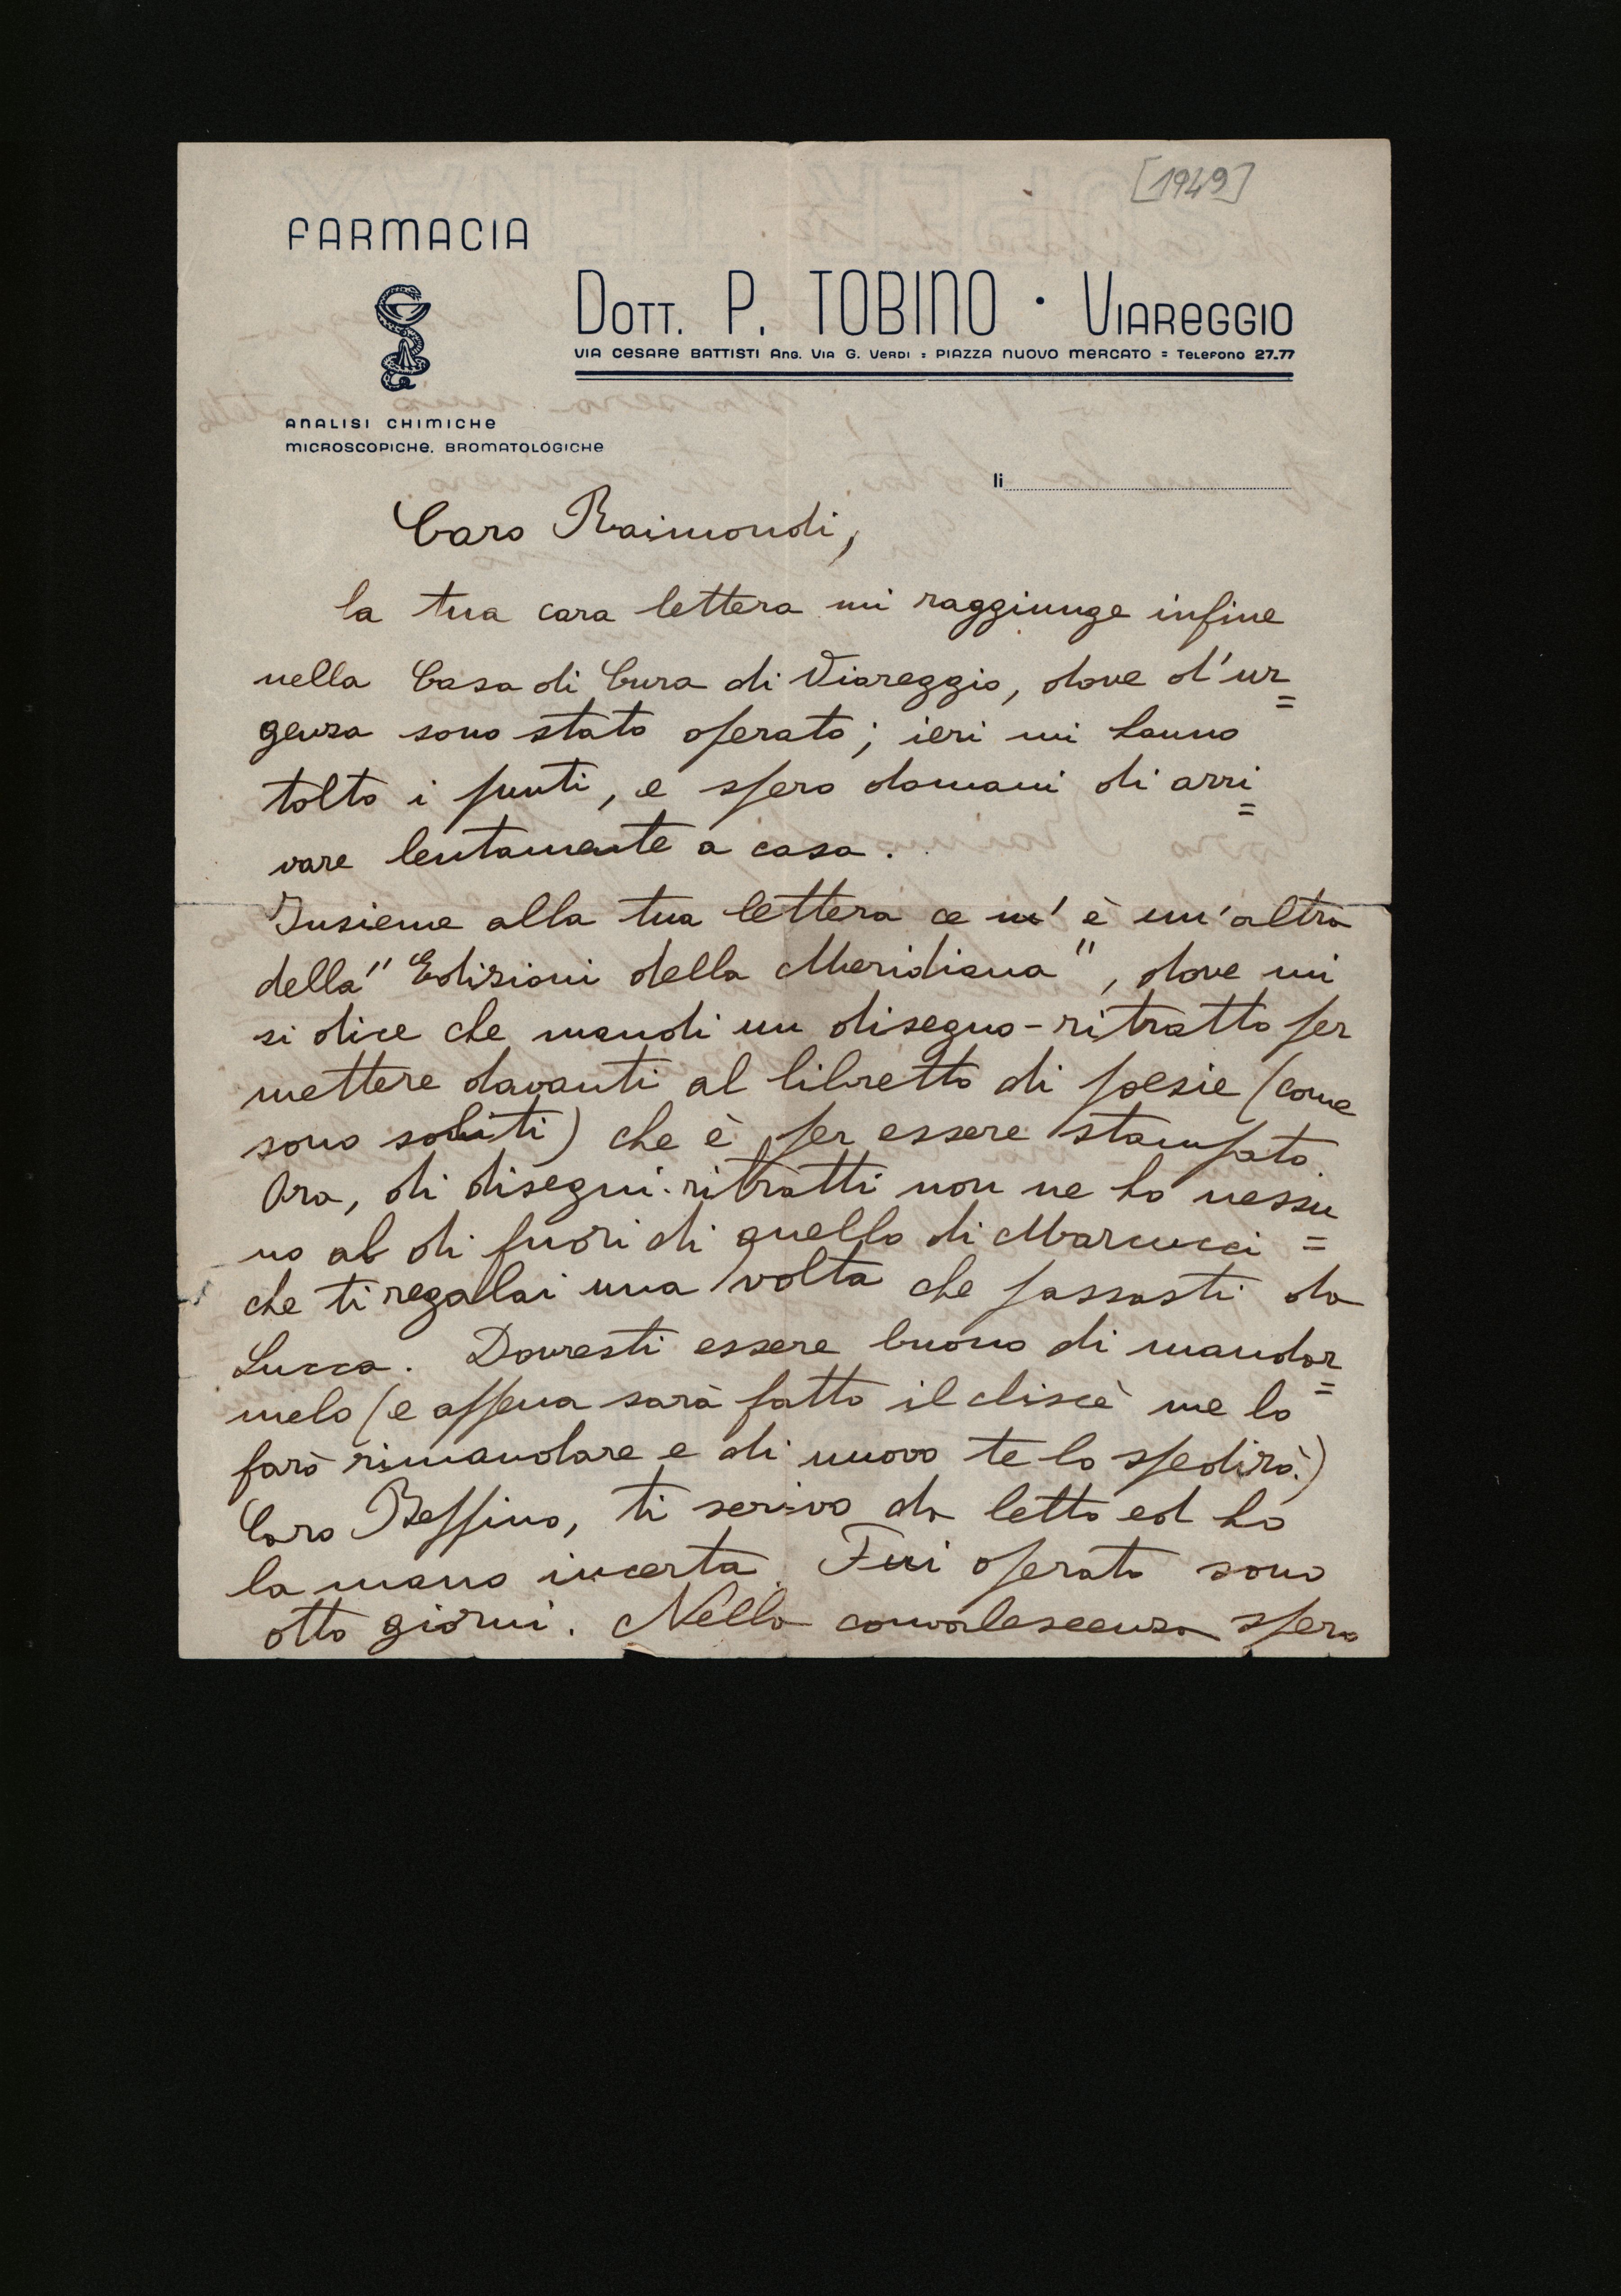 [1949]
FARMACIA
DOTT. P. TOBINO · VIAREGGIO
VIA CESARE BATTISTI ANG. VIA G. VERDI = PIAZZA NUOVO MERCATO = TELEFONO 27.77
ANALISI CHIMICHE
MICROSCOPICHE. BROMATOLOGICHE
li
Caro Raimondi,
la tua cara lettera mi raggiunge infine
nella Casa di Cura di Viareggio, dove d'ur=
genza sono stato operato; ieri mi hanno
tolto i punti, e spero domani di arri=
vare lentamente a casa.
Insieme alla tua lettera ce n' è un'altra
della "Edizioni della Meridiana", dove mi
si dice che mandi un disegno-ritratto per
mettere davanti al libretto di poesie (come
sono soliti) che è per essere stampato.
Ora, di disegni-ritratti non ne ho nessu
no al di fuori di quello di Marcucci =
che ti regalai una volta che passasti da
Lucca. Dovresti essere buono di mandar=
melo (e appena sarà fatto il cliscè me lo
farò rimandare e di nuovo te lo spedirò.)
Caro Beppino, ti scrivo da letto ed ho
la mano incerta. Fui operato sono
otto giorni. Nella convalescenza spero